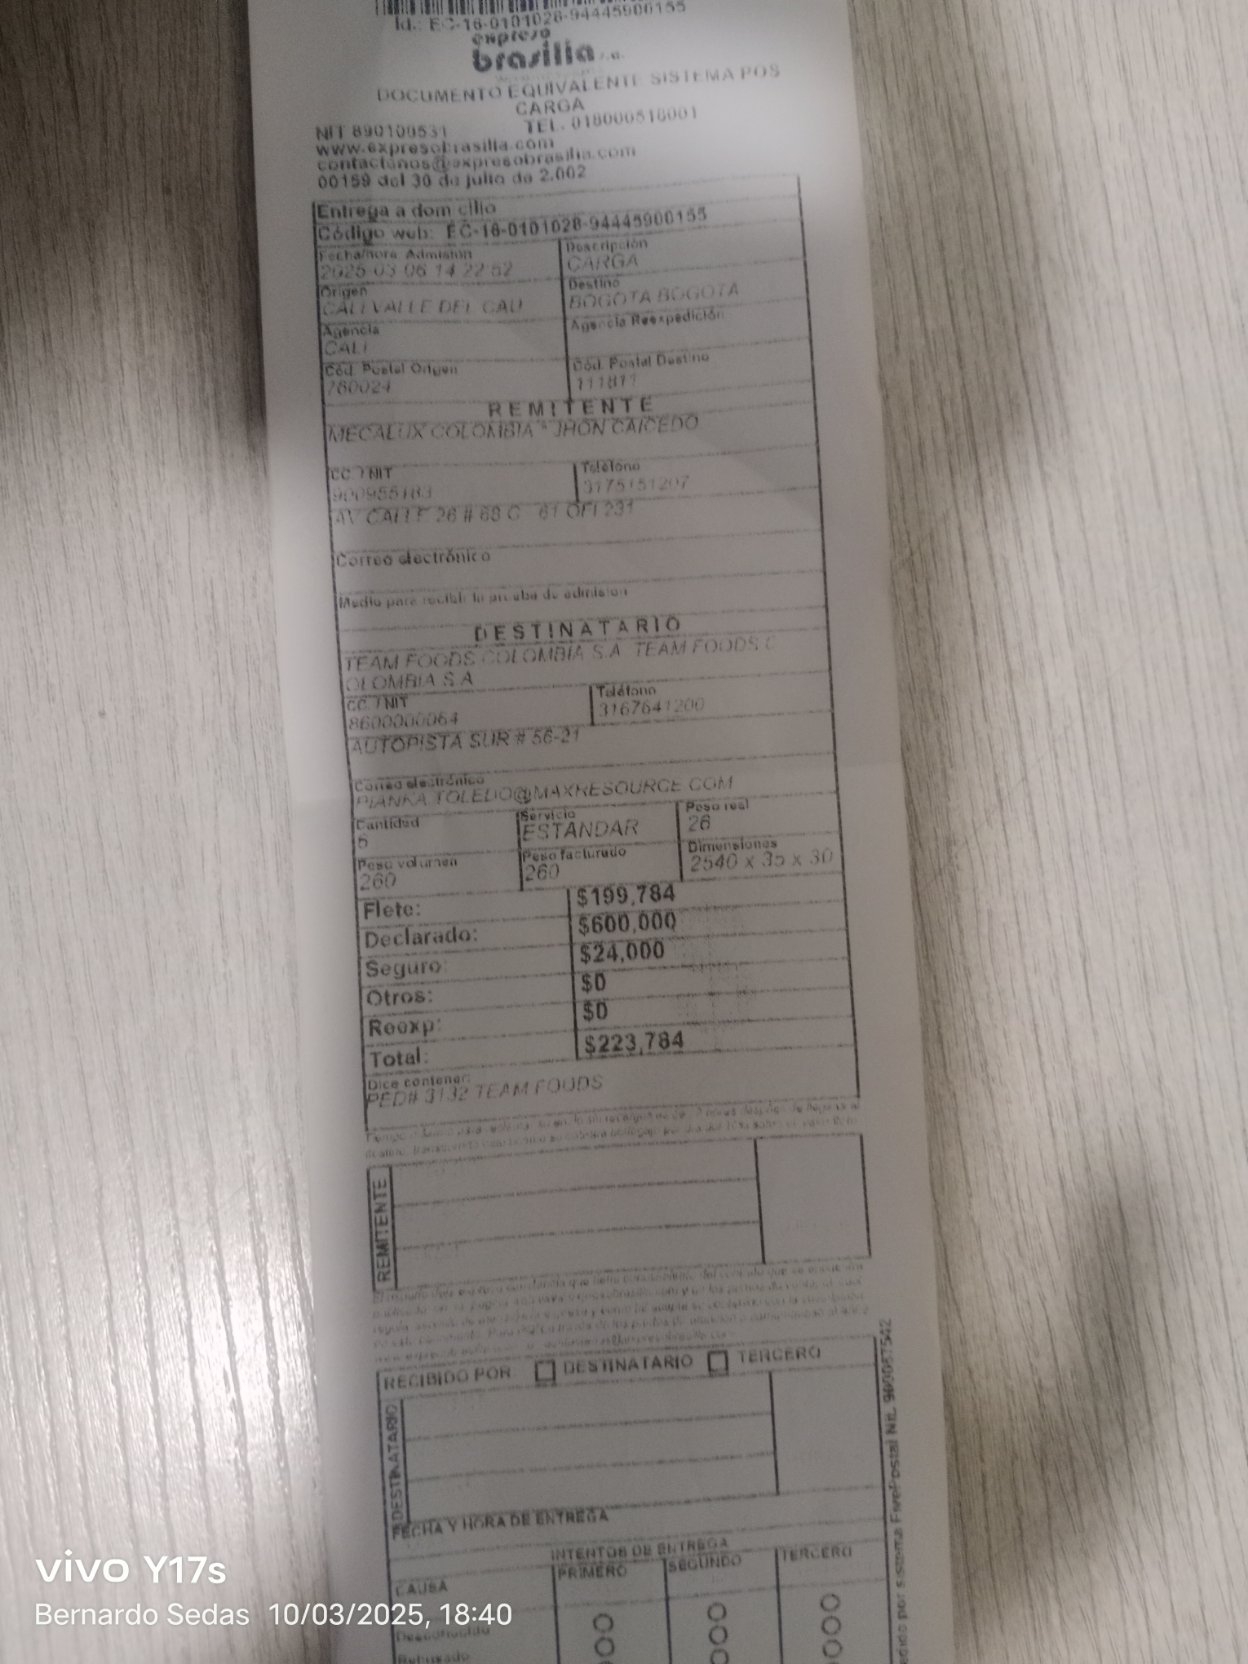 Id.: EC-16-0101028-94445900155
expreso
brasilia s.a.
DOCUMENTO EQUIVALENTE SISTEMA POS
CARGA
NIT 890100531 TEL. 018000518001
www.expresobrasilia.com
contactenos@expresobrasilia.com
00159 del 30 de julio de 2.002
Entrega a domicilio
Código web: EC-16-0101028-94445900155
Fecha/hora Admision Descripción
2025-03-06 14:22:52 CARGA
Origen Destino
CALI VALLE DEL CAU BOGOTA BOGOTA
Agencia Agencia Reexpedición
CALI
Cód. Postal Origen Cód. Postal Destino
760024 111811
REMITENTE
MECALUX COLOMBIA * JHON CAICEDO
CC. / NIT Teléfono
900955183 3175151207
AV CALLE 26 # 68 C 61 OFI 231
Correo electrónico
Medio para recibir la prueba de admision
DESTINATARIO
TEAM FOODS COLOMBIA S.A. TEAM FOODS C
OLOMBIA S.A
CC. / NIT Teléfono
8600000064 3167641200
AUTOPISTA SUR # 56-21
Correo electrónico
PIANKA.TOLEDO@MAXRESOURCE.COM
Cantidad Servicio Peso real
5 ESTANDAR 26
Peso volumen Peso facturado Dimensiones
260 260 2540 x 35 x 30
Flete: $199,784
Declarado: $600,000
Seguro: $24,000
Otros: $0
Reexp: $0
Total: $223,784
Dice contener:
PED# 3132 TEAM FOODS
REMITENTE
RECIBIDO POR: DESTINATARIO TERCERO
DESTINATARIO
FECHA Y HORA DE ENTREGA
INTENTOS DE ENTREGA
CAUSA PRIMERO SEGUNDO TERCERO
Desconocido
Rehusado
vivo Y17s
Bernardo Sedas 10/03/2025, 18:40